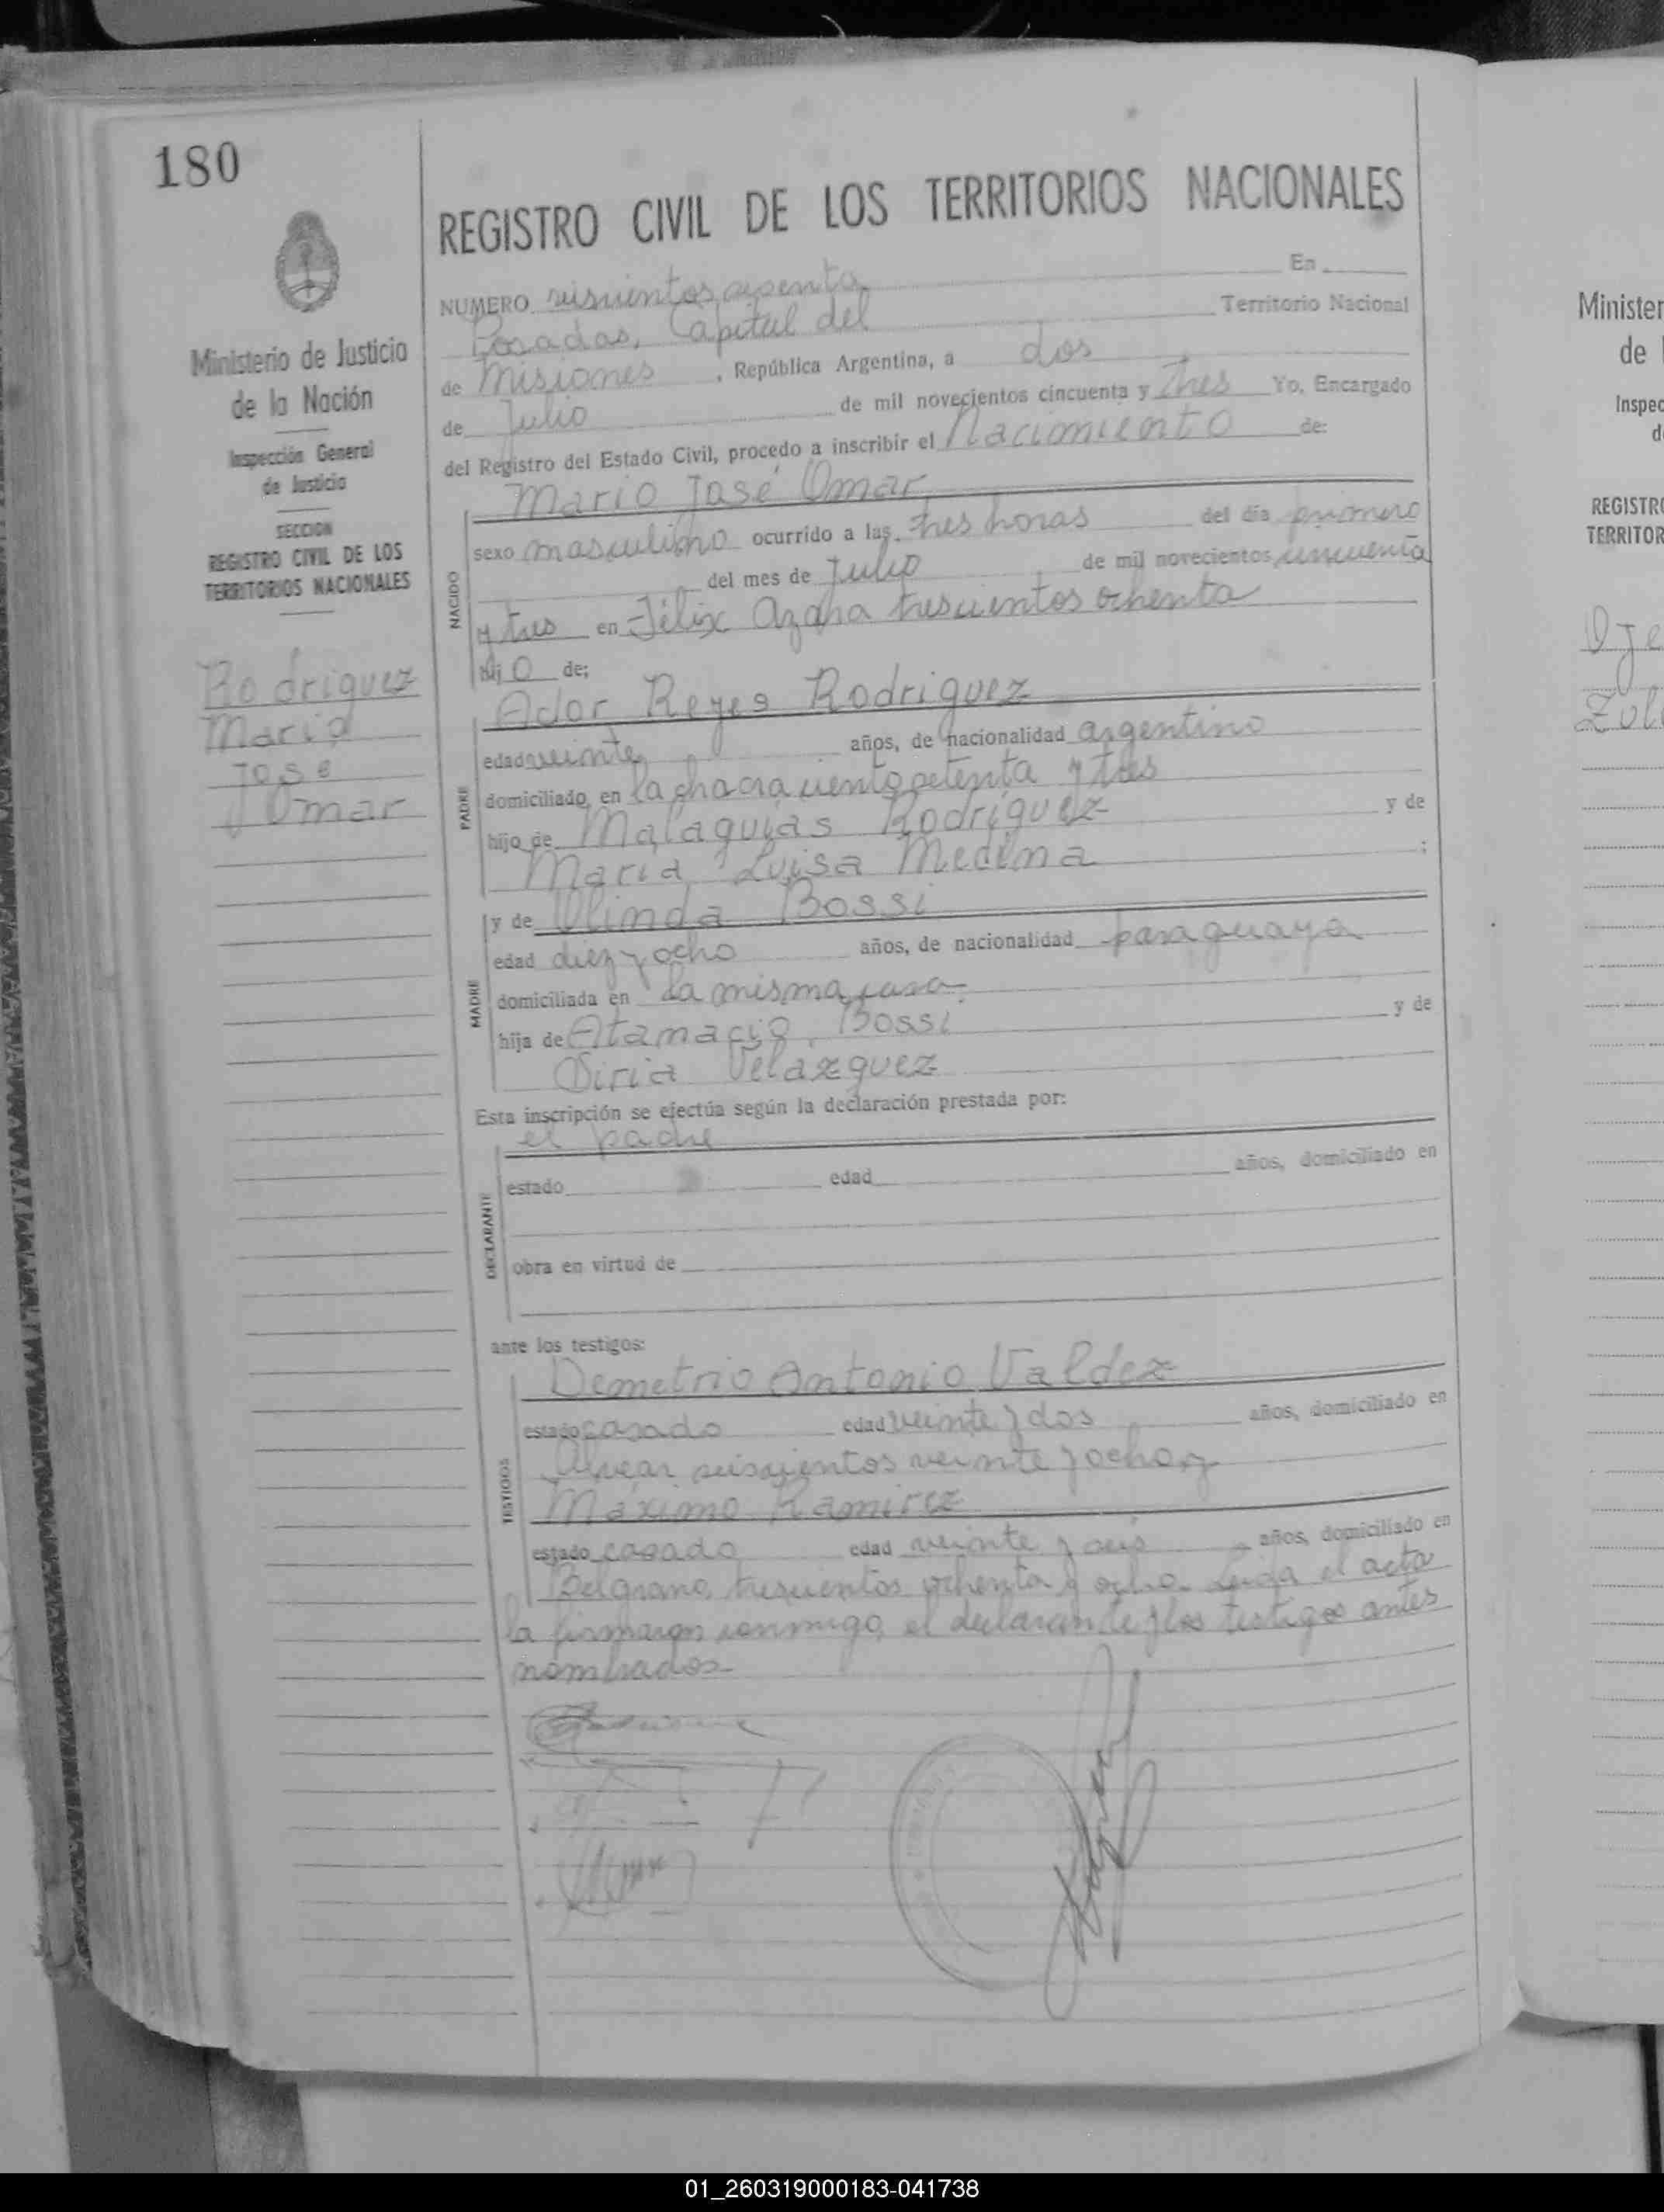 180
REGISTRO CIVIL DE LOS TERRITORIOS NACIONALES
Ministerio de Justicia
de la Nación
Inspección General
de Justicia
SECCION
REGISTRO CIVIL DE LOS
TERRITORIOS NACIONALES
Rodriguez
Mario
Jose
Omar
NUMERO seiscientos sesenta En
Posadas, Capital del Territorio Nacional
de Misiones, República Argentina, a dos
de Julio de mil novecientos cincuenta y tres Yo, Encargado
del Registro del Estado Civil, procedo a inscribir el Nacimiento de:
Mario José Omar
NACIDO
sexo masculino ocurrido a las tres horas del día primero
del mes de Julio de mil novecientos cincuenta
y tres en Félix Azara trescientos ochenta
hijo de;
Ador Reyes Rodriguez
PADRE
edad veinte años, de nacionalidad argentino
domiciliado en la chacra ciento setenta y tres
hijo de Malaquias Rodriguez y de
Maria Luisa Medina ;
y de Olinda Bossi
MADRE
edad diez y ocho años, de nacionalidad paraguaya
domiciliada en la misma casa.
hija de Atanacio Bossi y de
Siria Velazquez
Esta inscripción se efectúa según la declaración prestada por:
el padre
DECLARANTE
estado edad años, domiciliado en
obra en virtud de
ante los testigos:
Demetrio Antonio Valdez
TESTIGOS
estado casado edad veinte y dos años, domiciliado en
Alvear seiscientos veinte y ocho y
Máximo Ramirez
estado casado edad veinte y seis años, domiciliado en
Belgrano trescientos ochenta y ocho. Leida el acta
la firmaron conmigo, el declarante y los testigos antes
nombrados-
Minister
de
Inspec
d
REGISTRO
TERRITOR
Oje
Zul
01_260319000183-041738